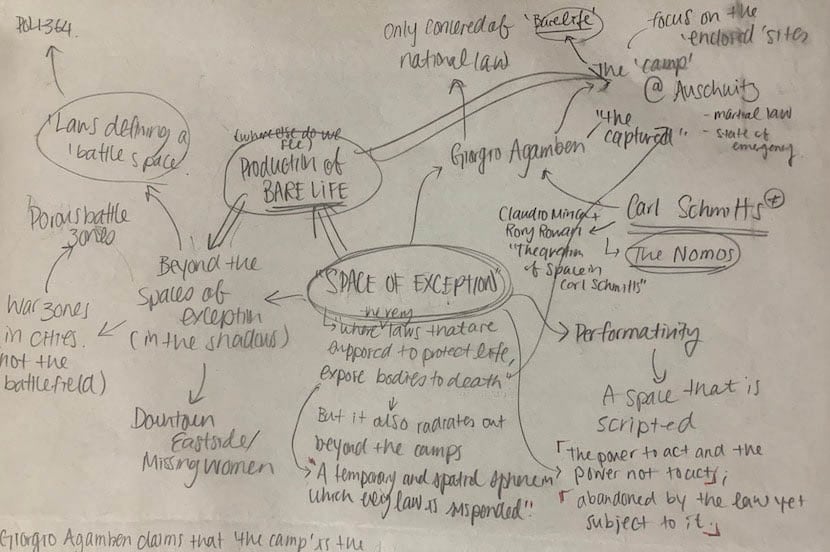 POLI 364.
"Laws defining a
'battle space'
Porous battle
zones
War zones
in cities.
not the
battlefield)
(where else do we
see)
Production of
BARE LIFE
Beyond the
spaces of
exception
(in the shadows)
Downtown
Eastside/
Missing Women
Only concered of
national law
'Bare life'
focus on the
'enclosed' sites
The 'camp'
@ Auschwitz
- martial law
- state of
emergency
Giorgio Agamben
"the
captured"
Carl Schmitts +
The Nomos
Claudio Minca +
Rory Rowan
"The question
of Space in
Carl Schmitts"
"SPACE OF EXCEPTION"
the very
"where laws that are
supposed to protect life,
expose bodies to death"
But it also radiates out
beyond the camps
"A temporary and spatial sphere in
which very law is suspended"
Performativity
A space that is
scripted
「the power to act and the
power not to act」;
「abandoned by the law yet
subject to it」
Giorgio Agamben claims that 'the camp' is the